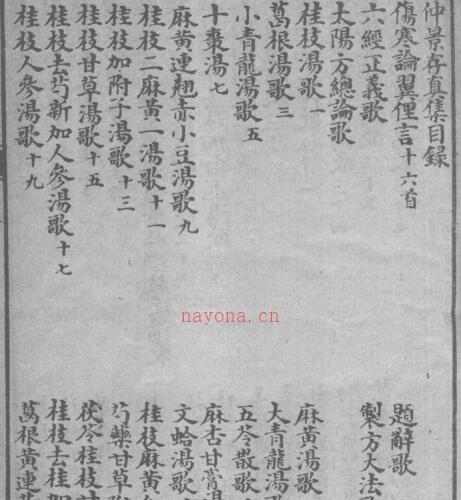 仲景存真集目錄
傷寒論翼俚言十六首 題辭歌
六經正義歌 製方大法
太陽方總論歌
桂枝湯歌一 麻黃湯歌
葛根湯歌三 大青龍湯歌
小青龍湯歌五 五苓散歌
十棗湯七 麻杏甘膏湯
麻黃連翹赤小豆湯歌九 文蛤湯歌
桂枝二麻黃一湯歌十一 桂枝麻黃
桂枝加附子湯歌十三 芍藥甘草
桂枝甘草湯歌十五 茯苓桂枝甘
桂枝去芍新加人參湯歌十七 桂枝去桂加
桂枝人參湯歌十九 葛根黃連
nayona.cn